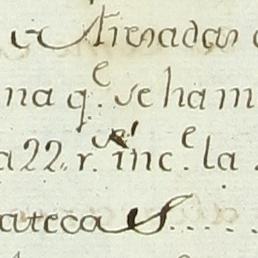 Atresadas
na q.e se ham
a 22 r.s inc.e la
ateca S.....